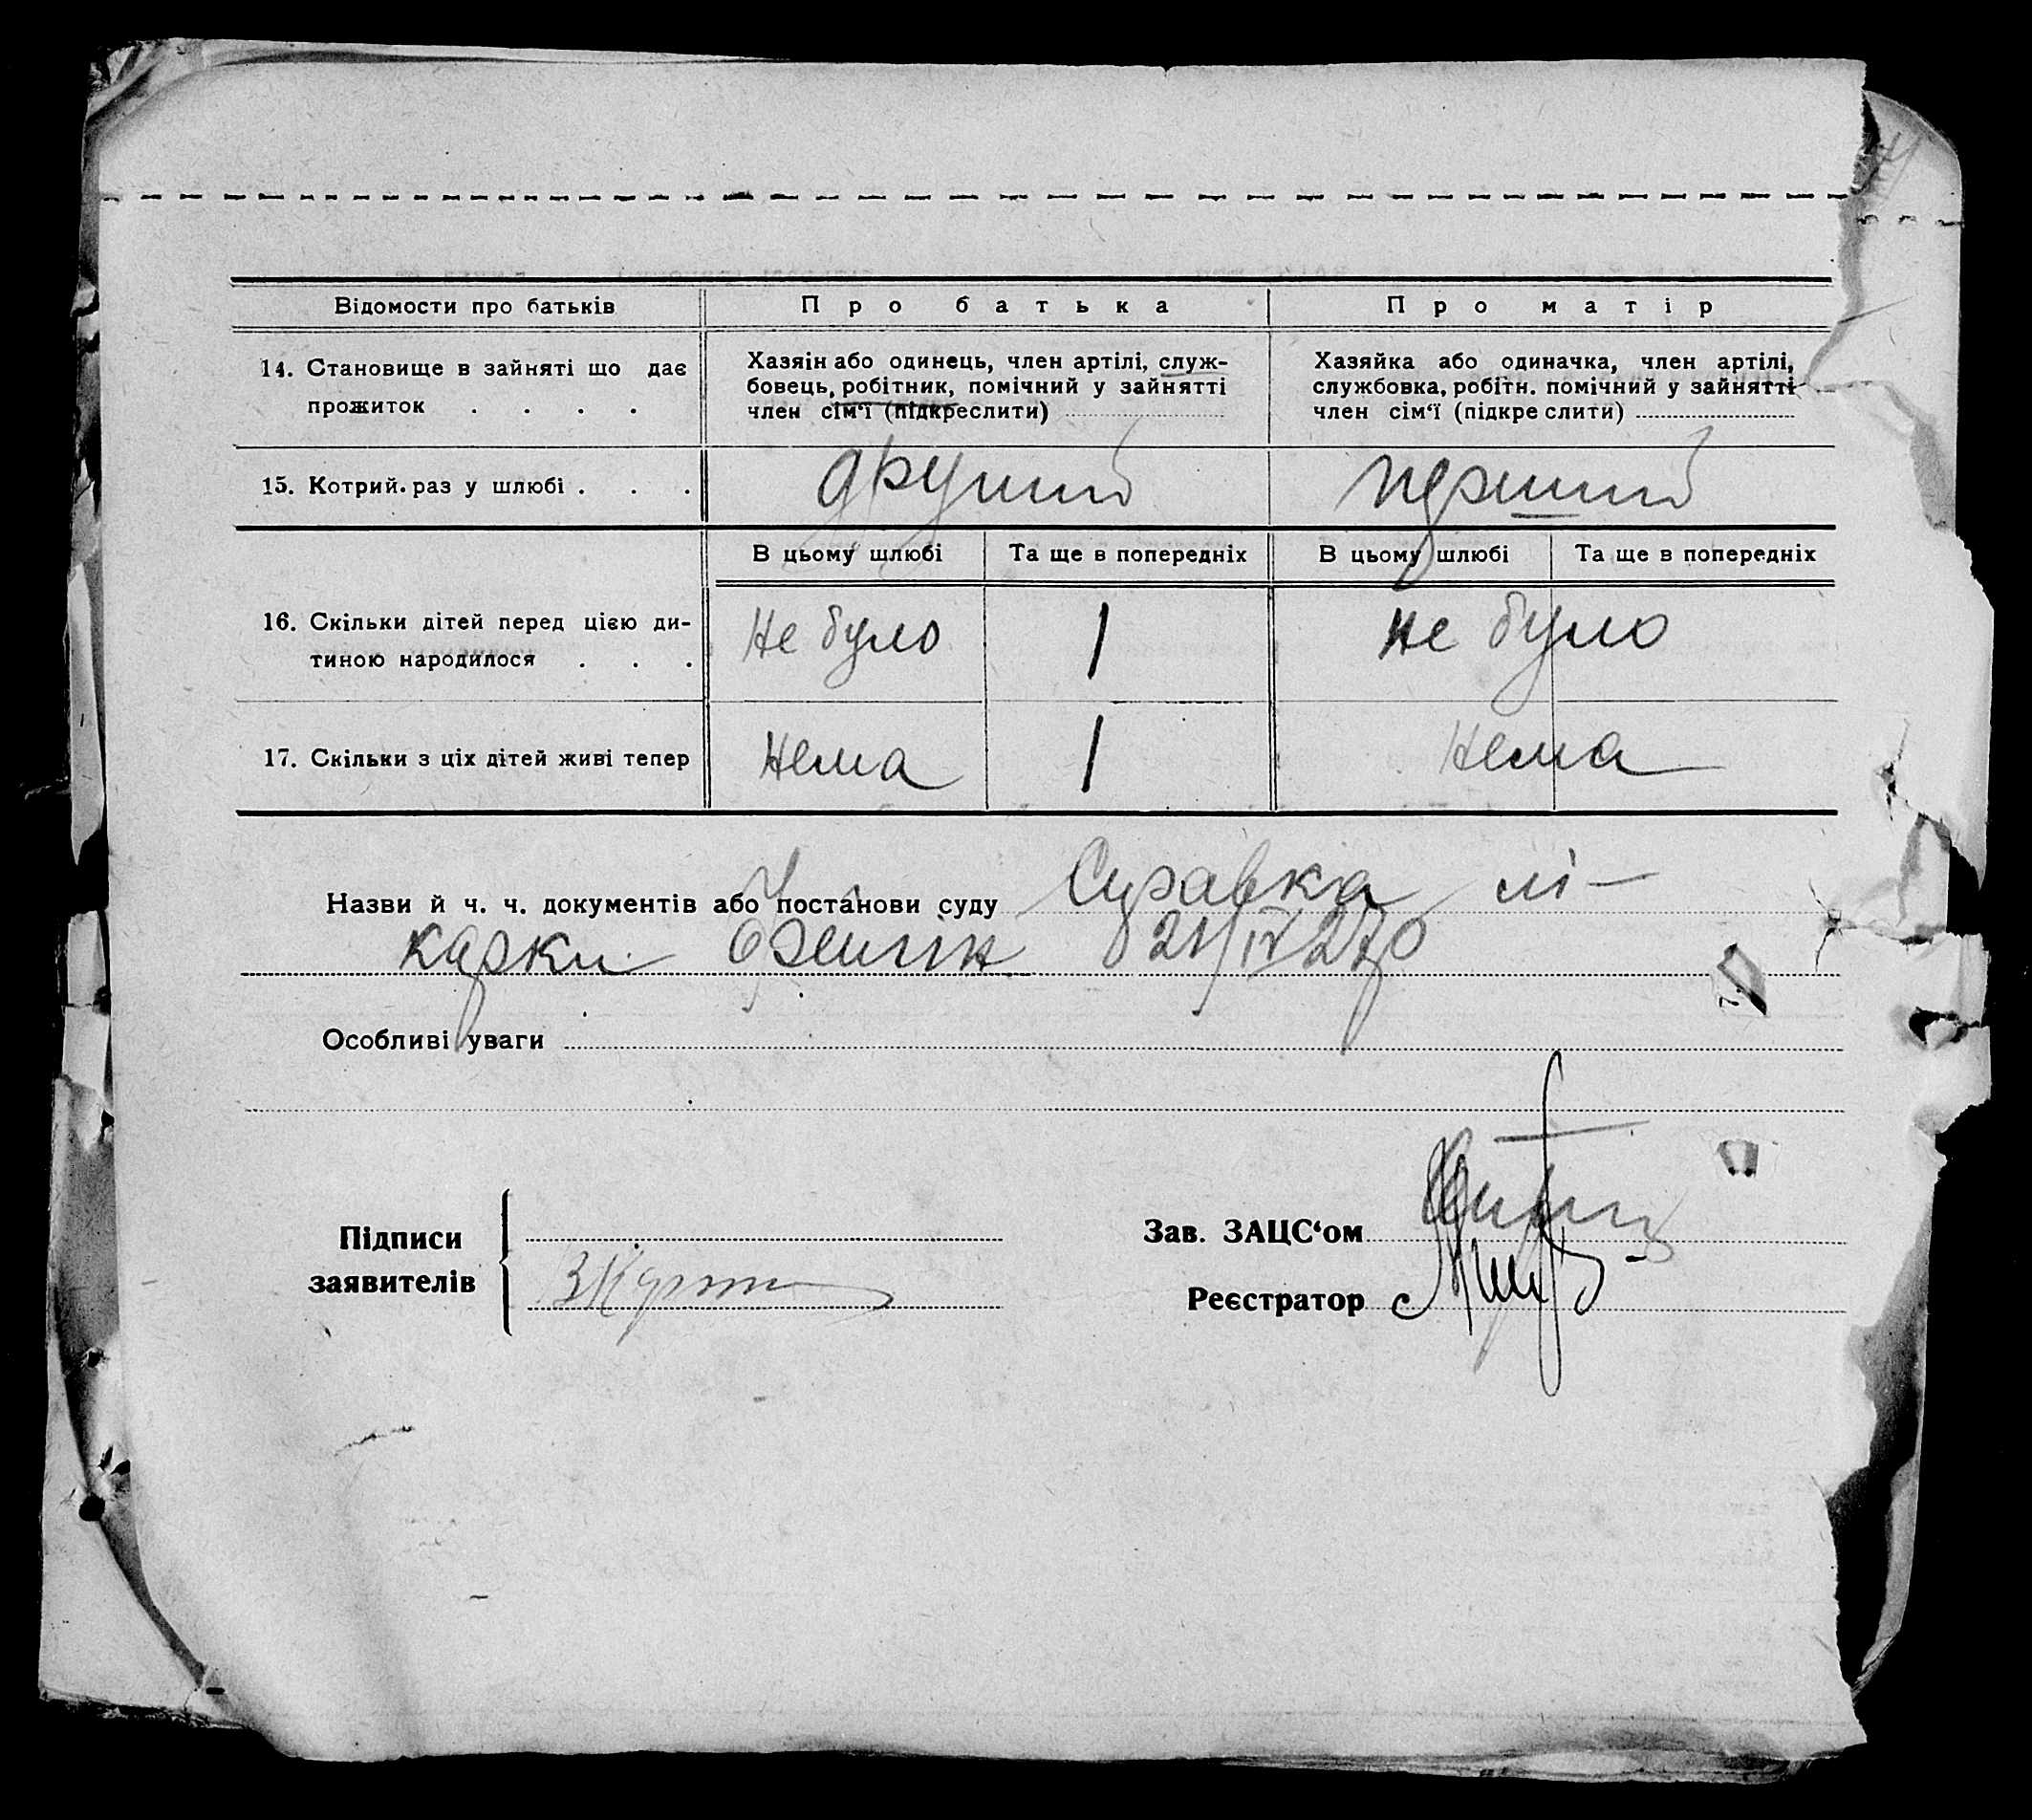 Відомости про батьків Про батька Про матір
14. Становище в зайняті що дає прожиток . . . .
Хазяін або одинець, член артілі, служ-
бовець, робітник, помічний у зайнятті
член сім‘ї (підкреслити)
Хазяйка або одиначка, член артілі,
службовка, робітн. помічний у зайнятті
член сім‘ї (підкреслити)
15. Котрий раз у шлюбі . . . другий перший
В цьому шлюбі Та ще в попередніх В цьому шлюбі Та ще в попередніх
16. Скільки дітей перед цією ди-
тиною народилося . . .
Не було 1 не було
17. Скільки з ціх дітей живі тепер нема 1 нема
Назви й ч. ч. документів або постанови суду Справка лі-
карки 21/IV 27р
Особливі уваги
Підписи
заявителів
Зав. ЗАЦС‘ом
Реєстратор